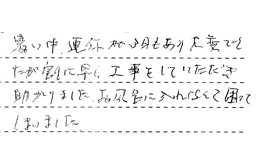 暑い中、連休が3日もあり大変でし
たが割に早く工事をしていただき
助かりました。お風呂に入れなくて困って
しまいました